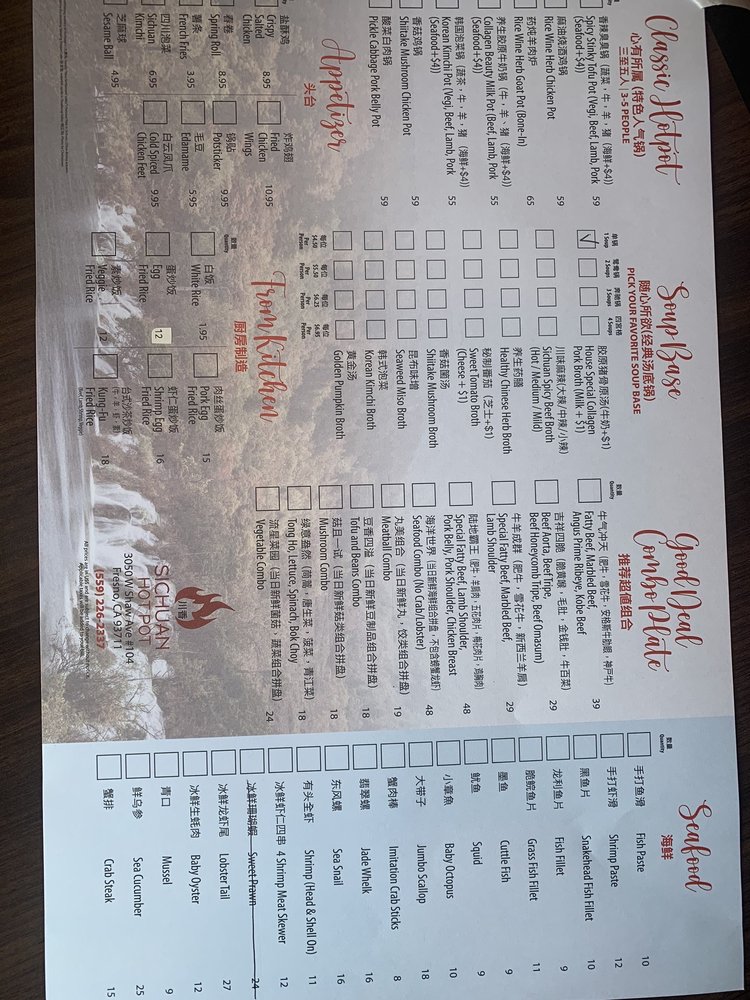 Classic Hotpot
心有所属 (特色人气锅)
三至五人 | 3-5 PEOPLE
香辣臭臭锅 (蔬菜，牛，羊，猪 (海鲜+$4))
Spicy Stinky Tofu Pot (Vegi, Beef, Lamb, Pork 59
(Seafood+$4))
麻油烧酒鸡锅
Rice Wine Herb Chicken Pot 59
药炖羊肉炉
Rice Wine Herb Goat Pot (Bone-In) 65
养生胶原牛奶锅 (牛，羊，猪 (海鲜+$4))
Collagen Beauty Milk Pot (Beef, Lamb, Pork 55
(Seafood+$4))
韩国泡菜锅 (蔬菜，牛，羊，猪 (海鲜+$4))
Korean Kimchi Pot (Vegi, Beef, Lamb, Pork 55
(Seafood+$4))
香菇鸡锅
Shiitake Mushroom Chicken Pot 59
酸菜白肉锅
Pickle Cabbage Pork Belly Pot 59
Appetizer
头台
盐酥鸡
Crispy
Salted
Chicken 8.95
炸鸡翅
Fried
Chicken
Wings 10.95
春卷
Spring Roll 8.95
锅贴
Potsticker 9.95
薯条
French Fries 3.95
毛豆
Edamame 5.95
四川泡菜
Sichuan
Kimchi 6.95
白云凤爪
Cold Spiced
Chicken Feet 9.95
芝麻球
Sesame Ball 4.95
Soup Base
随心所欲(经典汤底锅)
PICK YOUR FAVORITE SOUP BASE
单锅
1 Soup
鸳鸯锅
2 Soups
奔驰锅
3 Soups
四宫格
4 Soups
√
胶原猪骨原汤(牛奶+$1)
House Special Collagen
Pork Broth (Milk + $1)
川味麻辣(大辣/中辣/小辣)
Sichuan Spicy Beef Broth
(Hot / Medium / Mild)
养生药膳
Healthy Chinese Herb Broth
秘制番茄 (芝士+$1)
Sweet Tomato Broth
(Cheese + $1)
香菇菌汤
Shiitake Mushroom Broth
昆布味增
Seaweed Miso Broth
韩式泡菜
Korean Kimchi Broth
黄金汤
Golden Pumpkin Broth
每位
$4.50
Per
Person
每位
$5.50
Per
Person
每位
$6.25
Per
Person
每位
$6.95
Per
Person
From Kitchen
厨房制造
数量
Quantity
白饭
White Rice 1.95
肉丝蛋炒饭
Pork Egg
Fried Rice 15
蛋炒饭
Egg
Fried Rice 12
虾仁蛋炒饭
Shrimp Egg
Fried Rice 16
素炒饭
Veggie
Fried Rice 12
台式沙茶炒饭
Kung-Fu
Fried Rice 18
Good Deal
Combo Plate
推荐超值组合
数量
Quantity
牛气冲天 (肥牛，雪花牛，安格斯牛肋眼，神戶牛)
Fatty Beef, Marbled Beef,
Angus Prime Ribeye, Kobe Beef 39
吉祥四脆 (脆黄喉，毛肚，金钱肚，牛百葉)
Beef Aorta, Beef Tripe,
Beef Honeycomb Tripe, Beef Omasum) 29
牛羊成群 (肥牛，雪花牛，新西兰羊肩)
Special Fatty Beef, Marbled Beef,
Lamb Shoulder 29
陆地霸王 (肥牛，羊腿肉，五花肉片，梅花肉片，鸡胸肉)
Special Fatty Beef, Lamb Shoulder,
Pork Belly, Pork Shoulder, Chicken Breast 48
海洋世界 (当日新鲜海鲜组合拼盘，不包含螃蟹龙虾)
Seafood Combo (No Crab/Lobster) 48
丸美组合 (当日新鲜丸，饺类组合拼盘)
Meatball Combo 19
豆香四溢 (当日新鲜豆制品组合拼盘)
Tofu and Beans Combo 18
菇且一试 (当日新鲜菇类组合拼盘)
Mushroom Combo 18
绿意盎然 (茼蒿，唐生菜，菠菜，青江菜)
Tong Ho, Lettuce, Spinach, Bok Choy 18
流星菜园 (当日新鲜菌菇，蔬菜组合拼盘)
Vegetable Combo 24
川香
SICHUAN
HOTPOT
3050 W Shaw Ave #104
Fresno, CA 93711
(559) 226-2337
Seafood
海鲜
数量
Quantity
手打鱼滑 Fish Paste 10
手打虾滑 Shrimp Paste 12
黑鱼片 Snakehead Fish Fillet 10
龙利鱼片 Fish Fillet 9
脆鲩鱼片 Grass Fish Fillet 11
墨鱼 Cuttle Fish 9
鱿鱼 Squid 9
小章魚 Baby Octopus 10
大带子 Jumbo Scallop 18
蟹肉棒 Imitation Crab Sticks 8
翡翠螺 Jade Whelk 16
东风螺 Sea Snail 16
有头全虾 Shrimp (Head & Shell On) 11
冰鲜虾仁四串 4 Shrimp Meat Skewer 12
冰鲜珊瑚蝦 Sweet Prawn 24
冰鲜龙虾尾 Lobster Tail 27
冰鲜生蚝肉 Baby Oyster 12
青口 Mussel 9
鲜乌参 Sea Cucumber 25
蟹排 Crab Steak 15